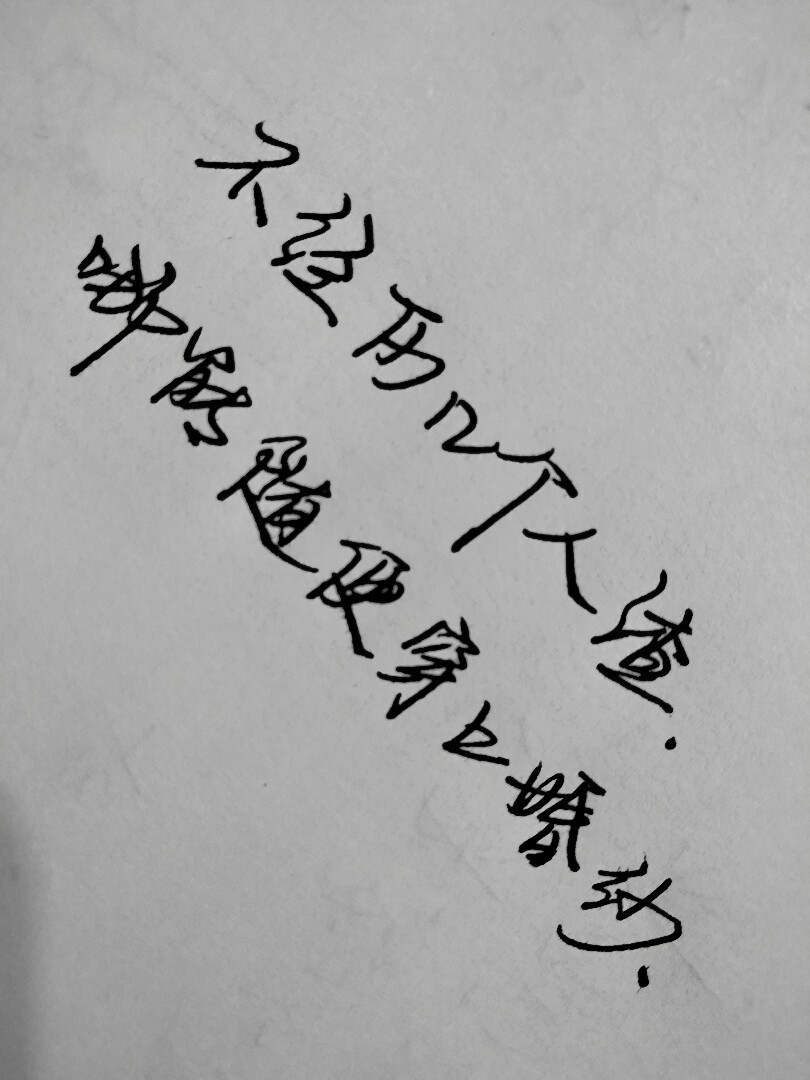 不经历几个人渣.
哪能随便穿上婚纱.